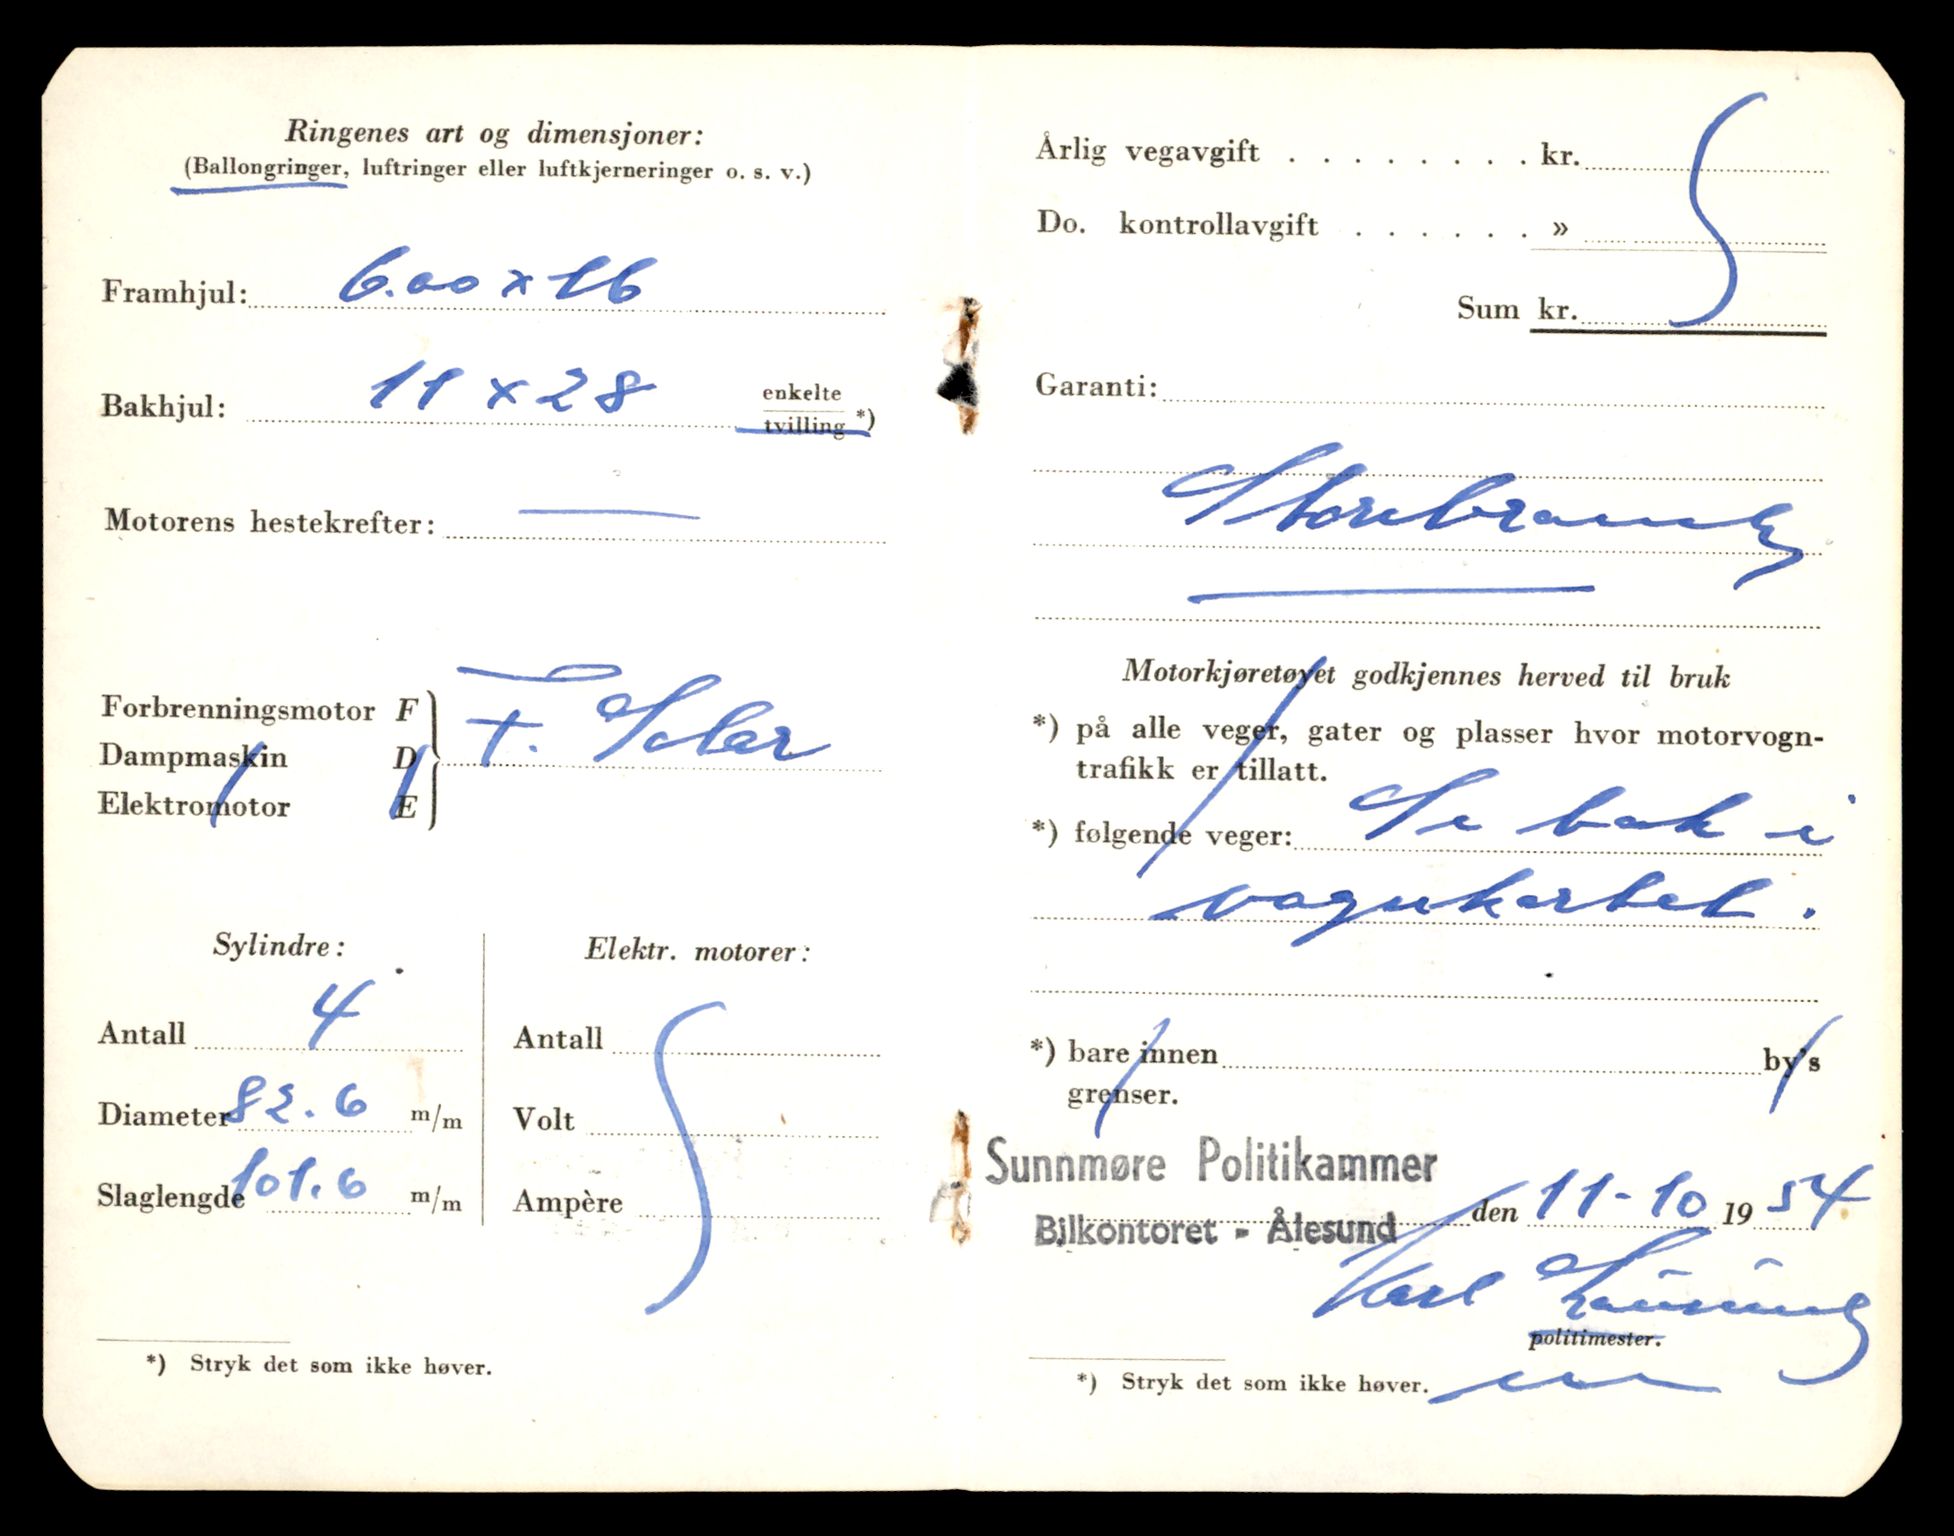 Ringenes art og dimensjoner:
(Ballongringer, luftringer eller luftkjerneringer o. s. v.)
Framhjul: 6.00 x 16
Bakhjul: 11 x 28 enkelte
tvilling *)
Motorens hestekrefter: —
Forbrenningsmotor F
Dampmaskin D
Elektromotor E
F.
Sylindre:
Antall 4
Diameter 82.6 m/m
Slaglengde 101.6 m/m
Elektr. motorer:
Antall
Volt
Ampère
*) Stryk det som ikke høver.
Årlig vegavgift . . . . . . . . kr.
Do. kontrollavgift . . . . . . »
Sum kr.
Garanti:
Storebrand
Motorkjøretøyet godkjennes herved til bruk
*) på alle veger, gater og plasser hvor motorvogn-
trafikk er tillatt.
*) følgende veger: Se bak i
vognkortet.
*) bare innen by's
grenser.
Sunnmøre Politikammer
den 11-10 1954
Bilkontoret - Ålesund
Karl
politimester.
*) Stryk det som ikke høver.